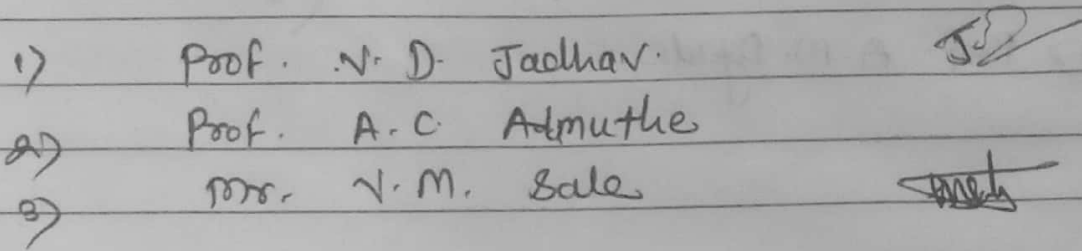 1) Prof. N. D. Jadhav.
2) Prof. A. C. Admuthe
3) Mr. V. M. Sale